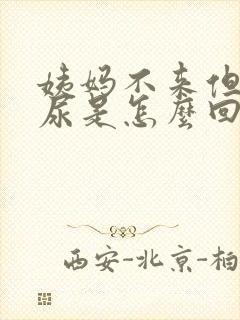 姨妈不来但
尿是怎麼回
西安-北京-柏